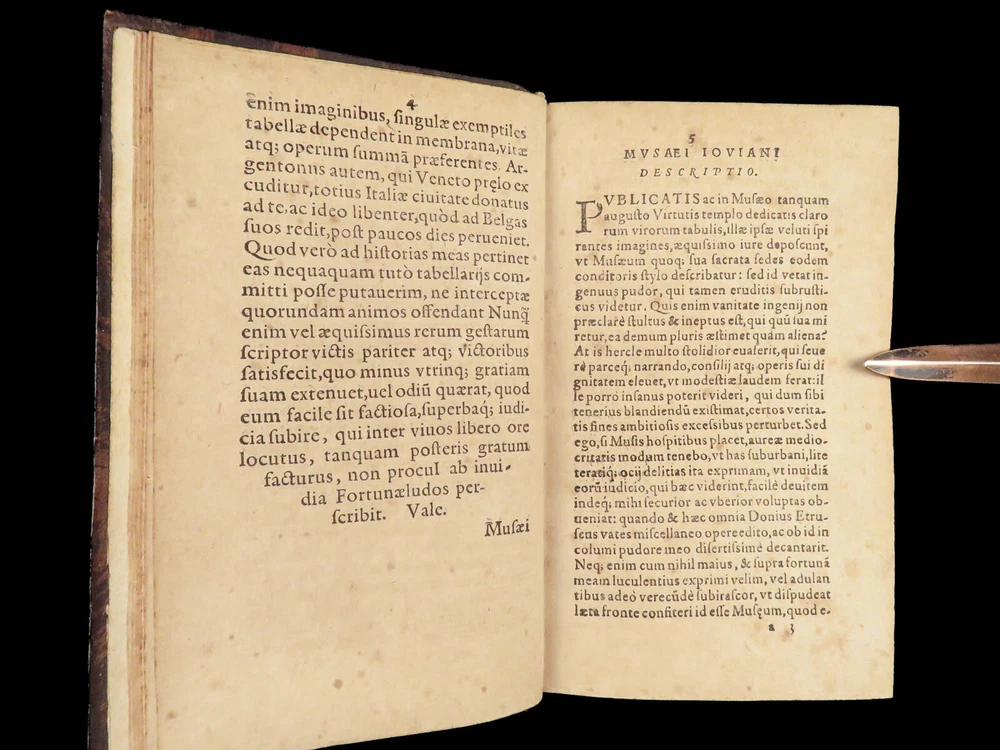 4
enim imaginibus, singulæ exemptiles
tabellæ dependent in membrana, vitæ
atq; operum summã præferentes. Ar-
gentonus autem, qui Veneto pręlo ex
cuditur, totius Italiæ ciuitate donatus
ad te, ac ideo libenter, quòd ad Belgas
suos redit, post paucos dies perueniet.
Quod verò ad historias meas pertinet
eas nequaquam tutò tabellarijs com-
mitti posse putauerim, ne interceptæ
quorundam animos offendant Nunq̃
enim vel æquissimus rerum gestarum
scriptor victis pariter atq; victoribus
satisfecit, quo minus vtrinq; gratiam
suam extenuet, uel odiũ quærat, quod
eum facile sit factiosa, superbaq; iudi-
cia subire, qui inter viuos libero ore
locutus, tanquam posteris gratum
facturus, non procul ab inui-
dia Fortunæ ludos per-
scribit. Vale.
Musæi
5
MVSAEI IOVIANI
DESCRIPTIO.
PVBLICATIS ac in Musæo tanquam
augusto Virtutis templo dedicatis claro
rum virorum tabulis, illæ ipsæ veluti spi
rantes imagines, æquissimo iure deposcunt,
vt Musæum quoq; sua sacrata sedes eodem
conditoris stylo describatur: sed id vetat in-
genuus pudor, qui tamen eruditis subrusti-
cus videtur. Quis enim vanitate ingenij non
præclarè stultus & ineptus est, qui quũ sua mi
retur, ea demum pluris æstimet quàm aliena?
At is hercle multo stolidior euaserit, qui seue
rè parceq; narrando, consilij atq; operis sui di
gnitatem eleuet, vt modestiæ laudem ferat: il
le porrò insanus poterit videri, qui dum sibi
tenerius blandiendũ existimat, certos verita-
tis fines ambitiosis excessibus perturbet. Sed
ego, si Musis hospitibus placet, aureæ medio-
critatis modum tenebo, vt has suburbani, lite
teratiq; ocij delitias ita exprimam, vt inuidiã
eorũ iudicio, qui hæc viderint, facilè deuitem
indeq; mihi securior ac vberior voluptas ob-
ueniat: quando & hæc omnia Donius Etru-
scus vates miscellaneo opere edito, ac ob id in
columi pudore meo disertissimè decantarit.
Neq; enim cum nihil maius, & supra fortunã
meam luculentius exprimi velim, vel adulan
tibus adeò verecũdè subirascor, vt dispudeat
læta fronte confiteri id esse Musęum, quod e-
a 3